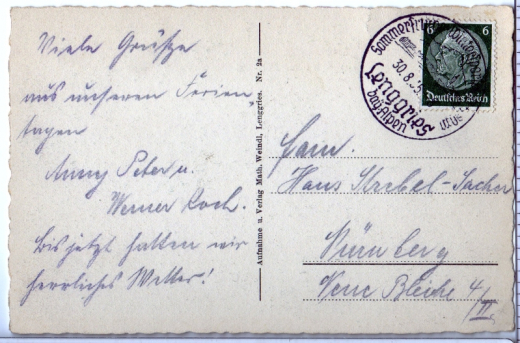 Viele Grüsse
aus unseren Ferien
tagen
Anny Peter u.
Werner Koch.
Bis jetzt hatten wir
herrliches Wetter!
Aufnahme u. Verlag Math. Weindl, Lenggries. Nr. 2a
Sommerfrische
30.8.35
Lenggries
bay. Alpen
6 6
Deutsches Reich
Fam.
Hans Strebel-Sacher
Nürnberg
Neue Bleiche 4/
II.